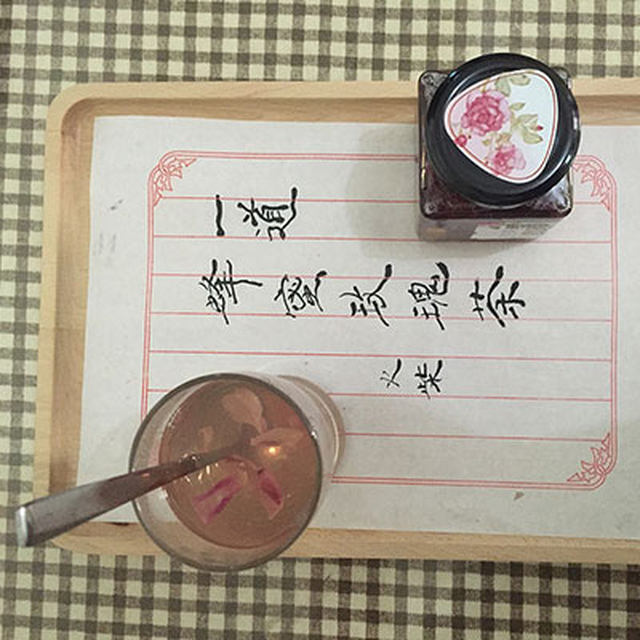 一道
蜂蜜玫瑰茶
火柴